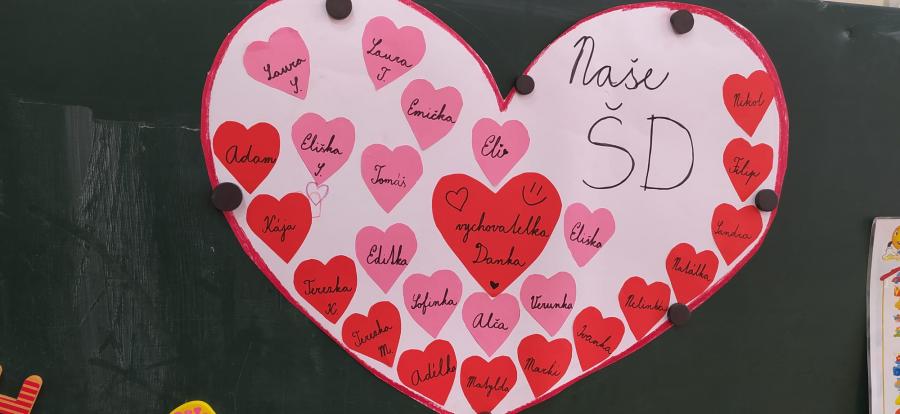 Naše
ŠD
Laura
S.
Laura
T.
Emička
Nikol
Adam
Eliška
S.
Eli
Tomáš
Filip
Kája
vychovatelka
Danka
Eliška
Sandra
Editka
Natálka
Terezka
K.
Sofinka
Verunka
Nelinka
Alča
Terezka
M.
Ivanka
Adélka
Matylda
Marki